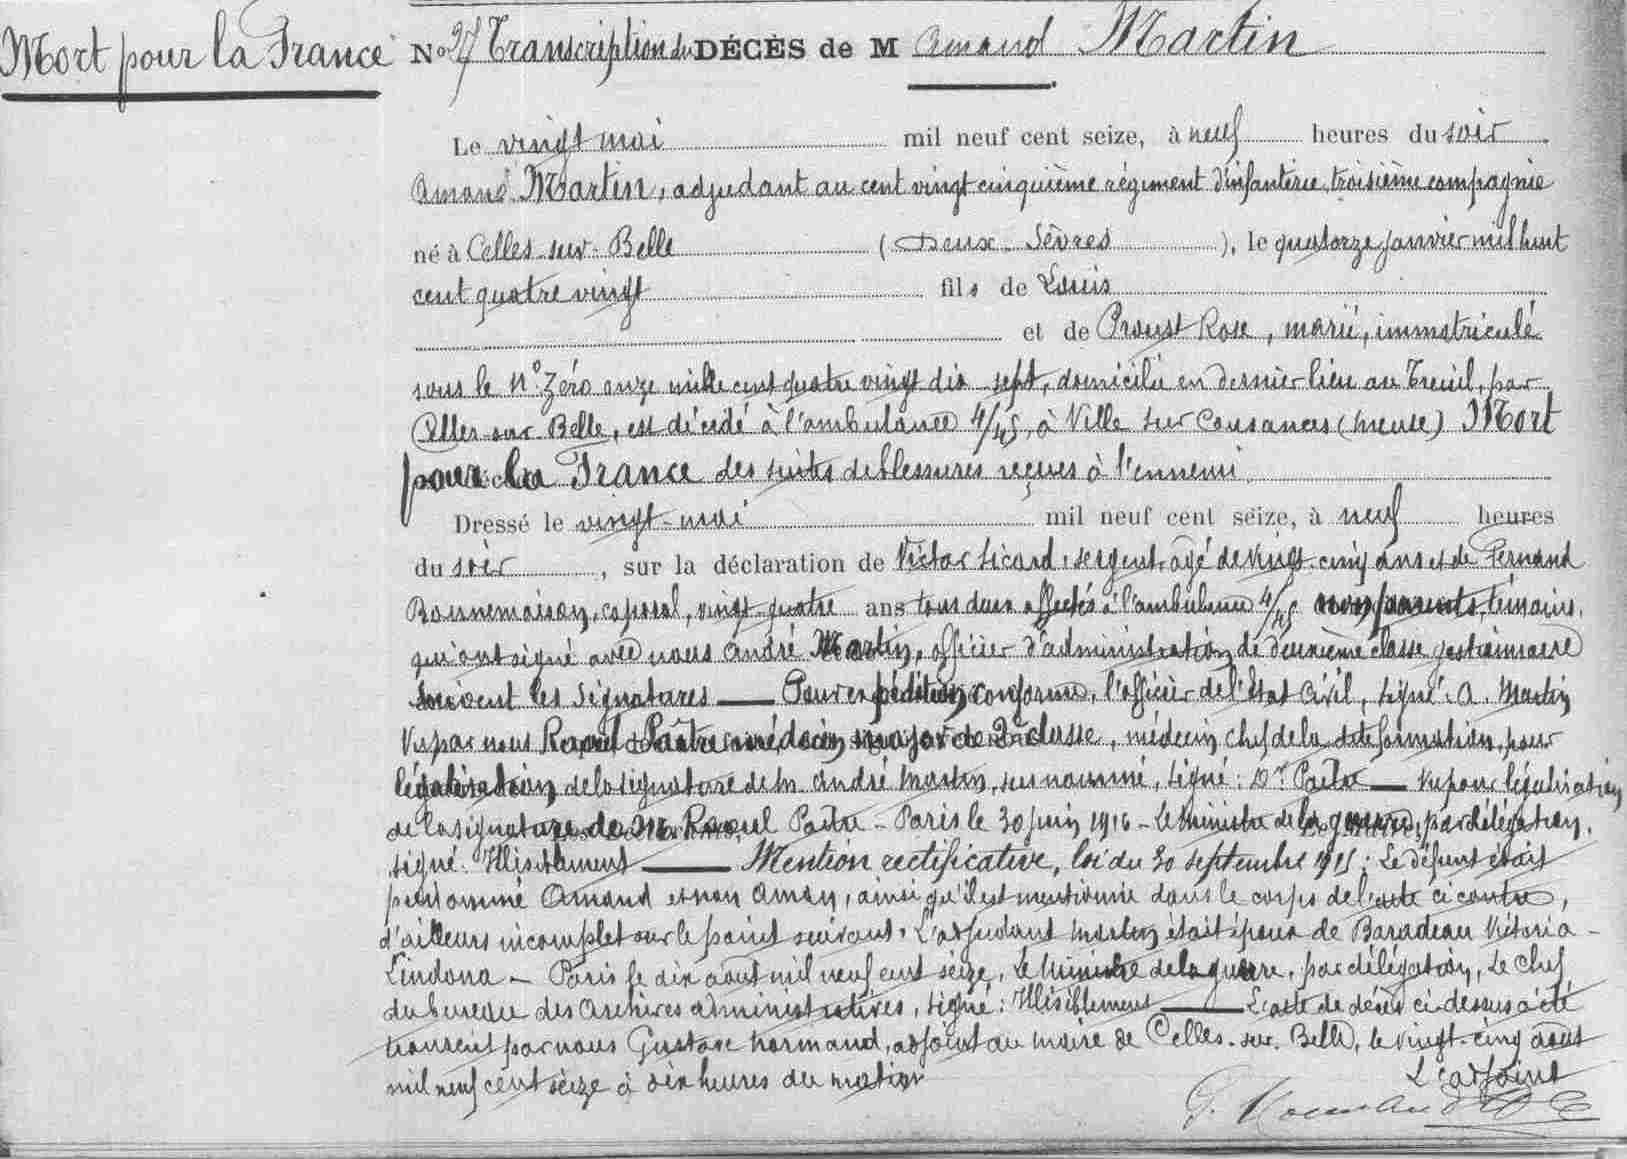 Mort pour la France
No 27 Transcription du DÉCÈS de M Amand Martin
Le vingt mai mil neuf cent seize, à neuf heures du soir
Amand Martin, adjudant au cent vingt cinquième régiment d'infanterie, troisième compagnie
né à Celles-sur-Belle (Deux-Sèvres), le quatorze janvier mil huit
cent quatre vingt fils de Louis
et de Proust Rose, marié, immatriculé
sous le N° Zéro onze mille cent quatre vingt dix sept, domicilié en dernier lieu au Treuil, par
Celles-sur-Belle, est décédé à l'ambulance 4/45, à Ville sur Cousances (Meuse) Mort
pour la France des suites de blessures reçues à l'ennemi.
Dressé le vingt-mai mil neuf cent seize, à neuf heures
du soir, sur la déclaration de Victor Sicard, sergent, agé de vingt-cinq ans et de Fernand
Bonnemaison, caporal, vingt-quatre ans tous deux affectés à l'ambulance 4/45 non parents, témoins,
qui ont signé avec nous André Martin, officier d'administration de deuxième classe gestionnaire
Suivent les signatures — Pour expédition conforme, l'officier de l'Etat Civil, signé: A. Martin
Vu par nous Raoul Paître médecin major de 2e classe, médecin chef de la dite formation, pour
légalisation de la signature de M. André Martin, susnommé, signé: Dr Paître — Vu pour légalisation
de la signature de M. Raoul Paître — Paris le 30 juin 1916 — Le Ministre de la guerre, par délégation,
signé: Illisiblement — Mention rectificative, loi du 30 septembre 1915: Le défunt était
prénommé Amand et non Aman, ainsi qu'il est mentionné dans le corps de l'acte ci contre,
d'ailleurs incomplet sur le point suivant: L'adjudant Martin était époux de Baradeau Victoria-
Lindona — Paris le dix août mil neuf cent seize, Le Ministre de la guerre, par délégation, Le Chef
du bureau des Archives administratives, signé: Illisiblement — L'acte de décès ci-dessus a été
transcrit par nous Gustave Normand, adjoint au maire de Celles-sur-Belle, le vingt-cinq août
mil neuf cent seize à dix heures du matin
L'adjoint
G. Normand